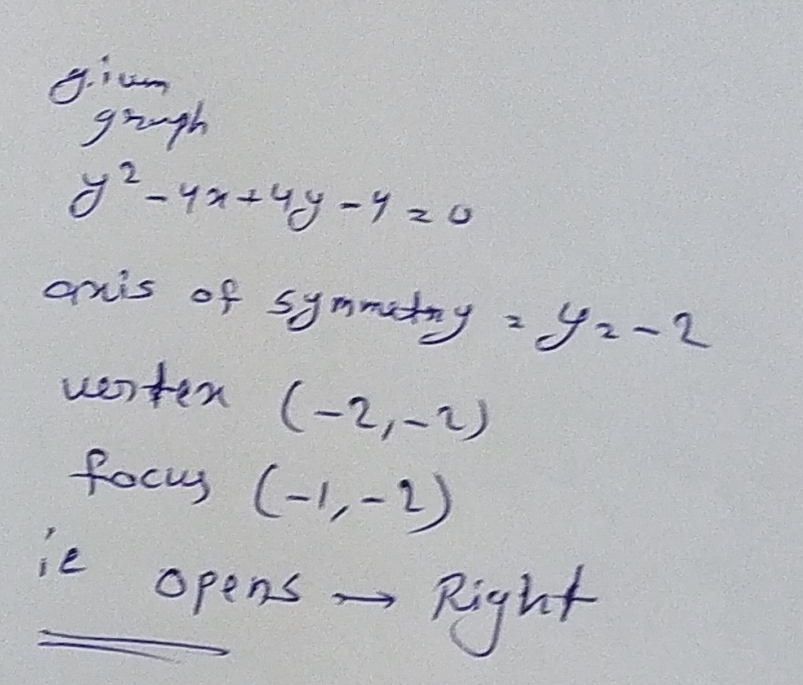 given
graph
y² - 4x + 4y - 4 = 0
axis of symmetry = y = -2
vertex (-2, -2)
focus (-1, -2)
ie opens → Right